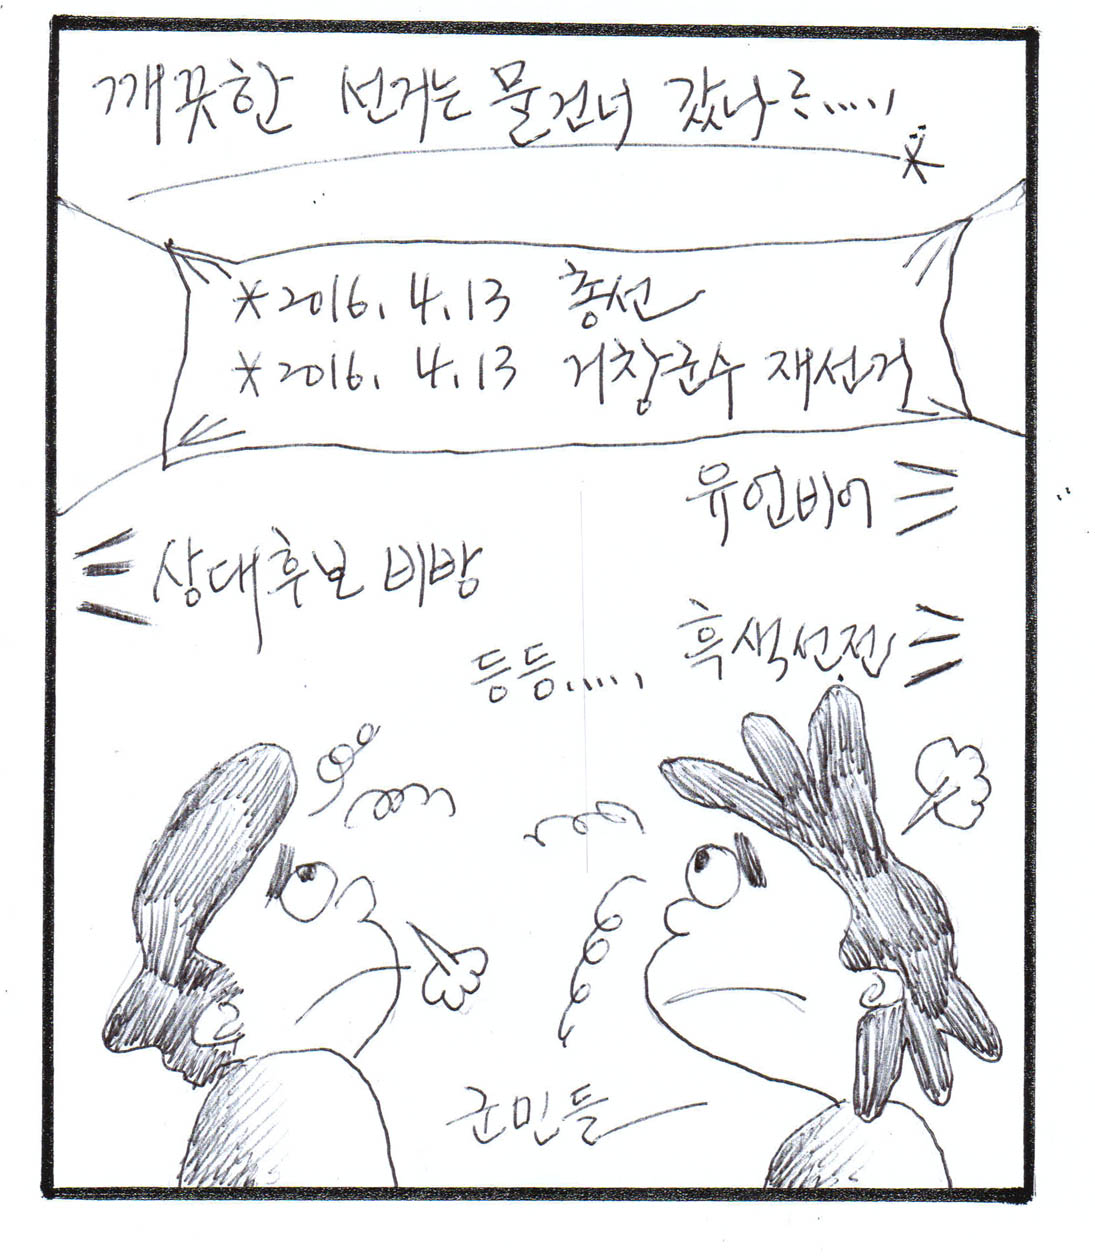 깨끗한 선거는 물건너 갔나ㄹ.....
*2016. 4.13 총선
*2016. 4.13 거창군수 재선거
유언비어
상대후보 비방
등등..... 흑색선전
군민들